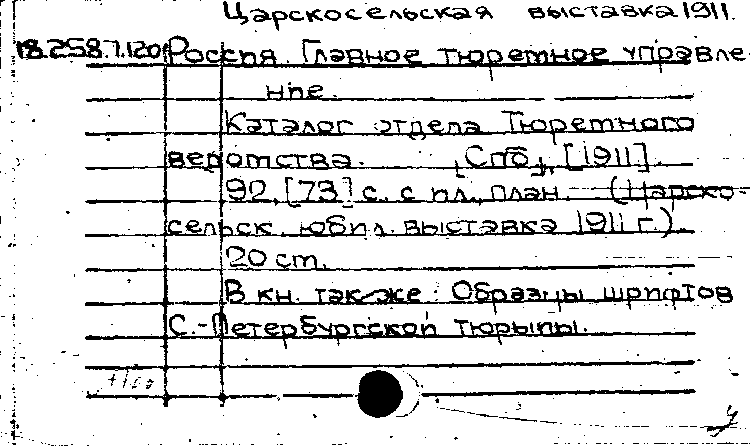 Царскосельская выставка 1911.
18.258.7.120 Россия. Главное тюремное управле-
ние.
Каталог отдела Тюремного
ведомства. [Спб.], [1911].
92, [73] с. с пл., план. (Царско-
сельск. юбил. выставка 1911 г.).
20 cm.
В кн. также: Образцы шрифтов
С.-Петербургской тюрьмы.